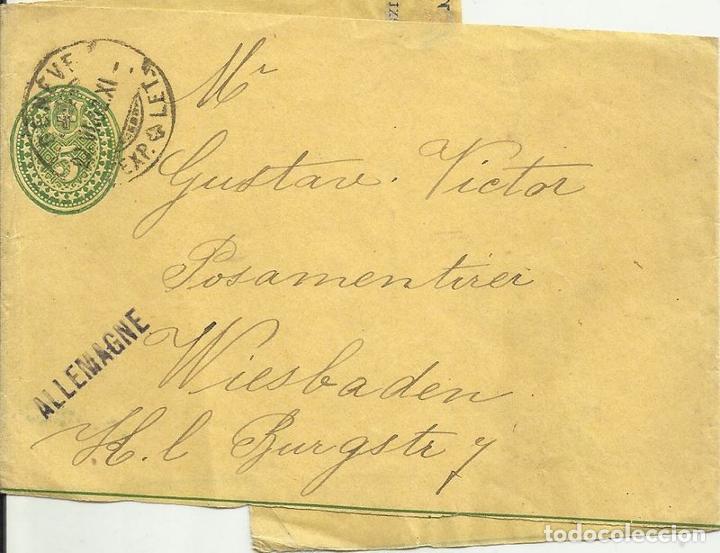 GENÈVE
XI
EXP. LET
5
Mr
Gustav. Victor
Posamentirer
Wiesbaden
Kl Burgstr 7
ALLEMAGNE
todocoleccion